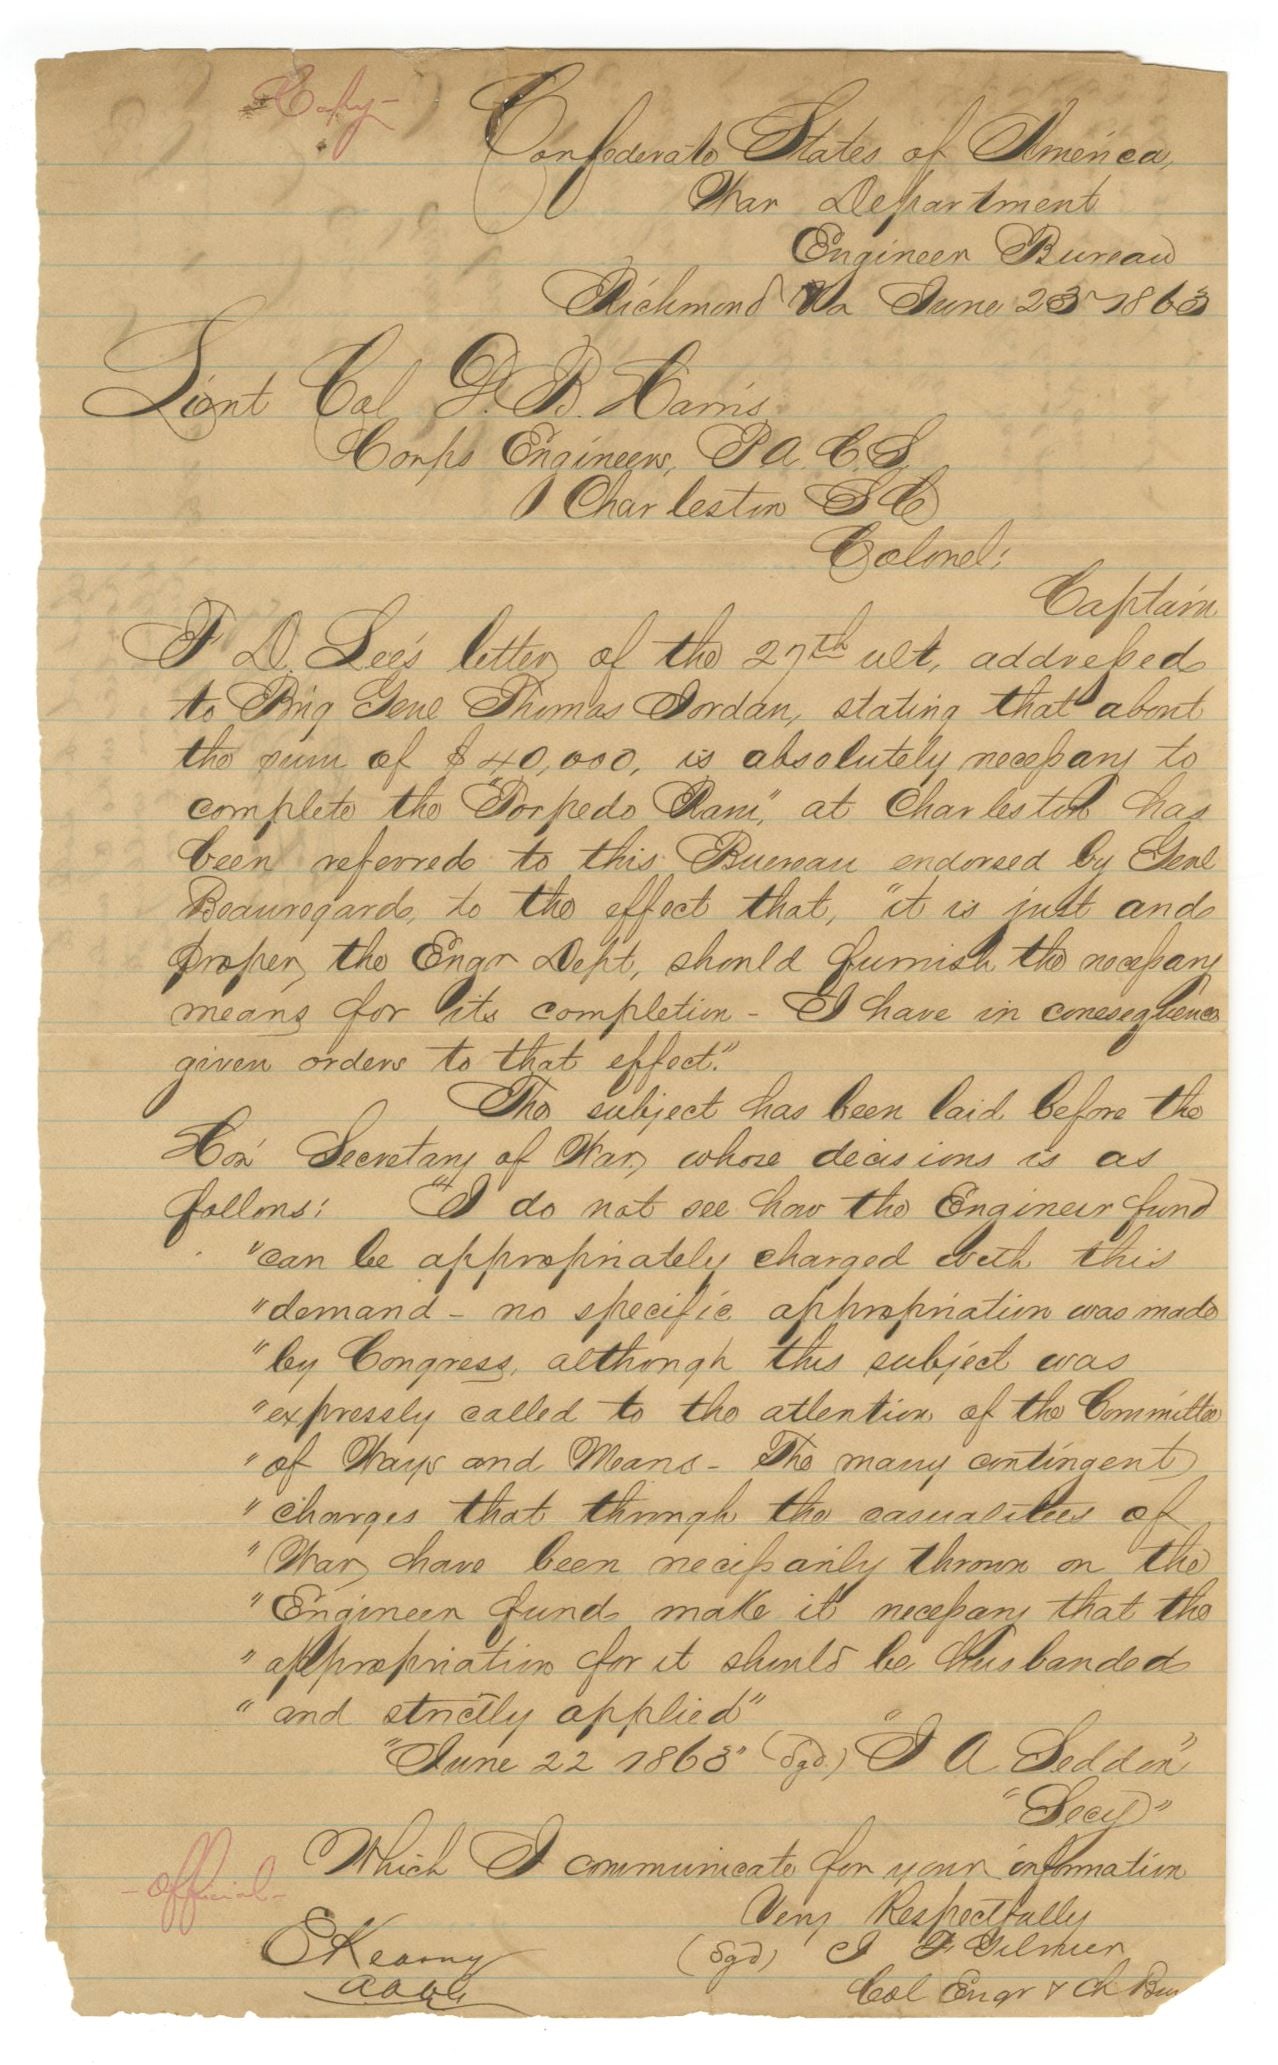 Copy-
Confederate States of America,
War Department
Engineer Bureau
Richmond Va June 23 1863
Lieut Col D. B. Harris
Corps Engineers, P. A. C. S.
Charleston S C
Colonel:
Captain
F D. Lee's letter of the 27th ult, addressed
to Brig Genl Thomas Jordan, stating that about
the sum of $40,000, is absolutely necessary to
complete the "Torpedo Ram," at Charleston has
been referred to this Buereau endorsed by Genl
Beauregard, to the effect that, "it is just and
proper, the Engr Dept, should furnish the necessary
means for its completion - I have in consequence
given orders to that effect."
The subject has been laid before the
Hon Secretary of War, whose decisions is as
follows: "I do not see how the Engineer fund
"can be appropriately charged with this
"demand - no specific appropriation was made
"by Congress, although this subject was
"expressly called to the attention of the Committee
"of Ways and Means - The many contingent
"charges that through the casualities of
"War, have been necessarily thrown on the
"Engineer fund make it necessary that the
"appropriation for it should be husbanded
"and strictly applied"
"June 22 1863" (Sgd.) "J A Seddon"
"Secy"
Which I communicate for your information
-Official-
Very Respectfully
E Kearny
(Sgd) J F Gilmer
A A A G
Col Engr & Ch Bu